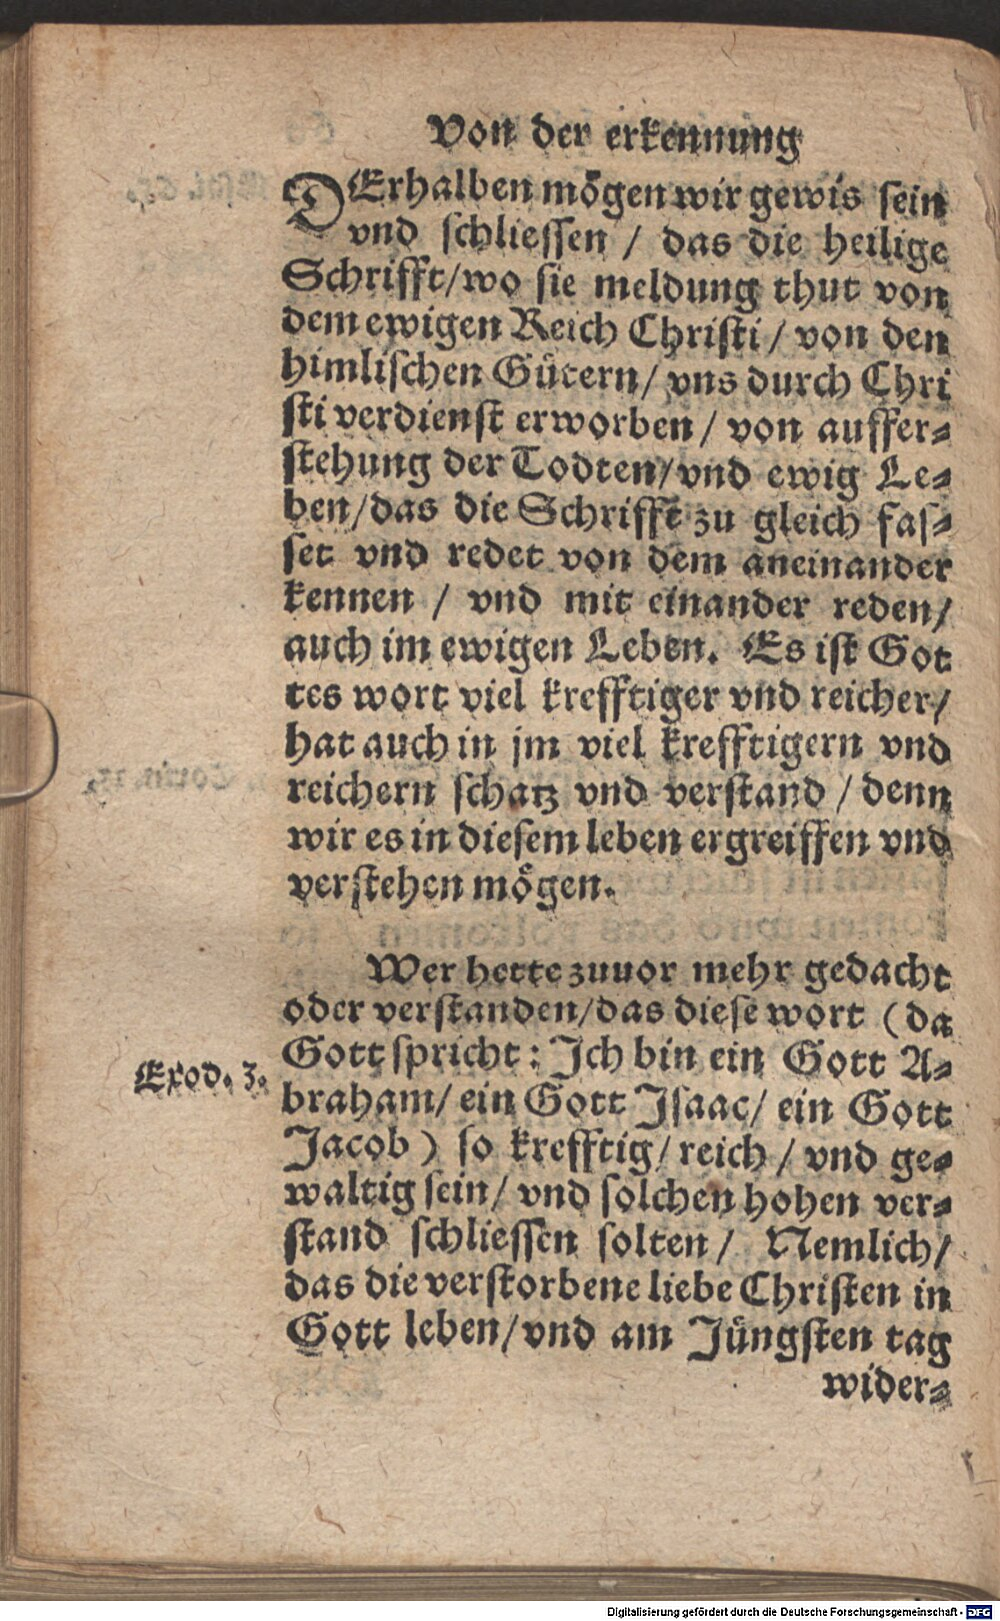 Von der erkennung
DErhalben mögen wir gewis sein
vnd schliessen / das die heilige
Schrifft/wo sie meldung thut von
dem ewigen Reich Christi / von den
himlischen Gütern/ vns durch Chri
sti verdienst erworben / von auffer-
stehung der Todten/vnd ewig Le-
ben/das die Schrifft zu gleich fas-
set vnd redet von dem aneinander
kennen / vnd mit einander reden/
auch im ewigen Leben. Es ist Got
tes wort viel krefftiger vnd reicher/
hat auch in jm viel krefftigern vnd
reichern schatz vnd verstand / denn
wir es in diesem leben ergreiffen vnd
verstehen mögen.
Wer hette zuuor mehr gedacht
oder verstanden/das diese wort (da
Gott spricht: Ich bin ein Gott A-
Exod. 3.
braham/ ein Gott Isaac/ ein Gott
Jacob) so krefftig/ reich / vnd ge-
waltig sein/ vnd solchen hohen ver-
stand schliessen solten/ Nemlich/
das die verstorbene liebe Christen in
Gott leben/vnd am Jüngsten tag
wider-
Digitalisierung gefördert durch die Deutsche Forschungsgemeinschaft - DFG